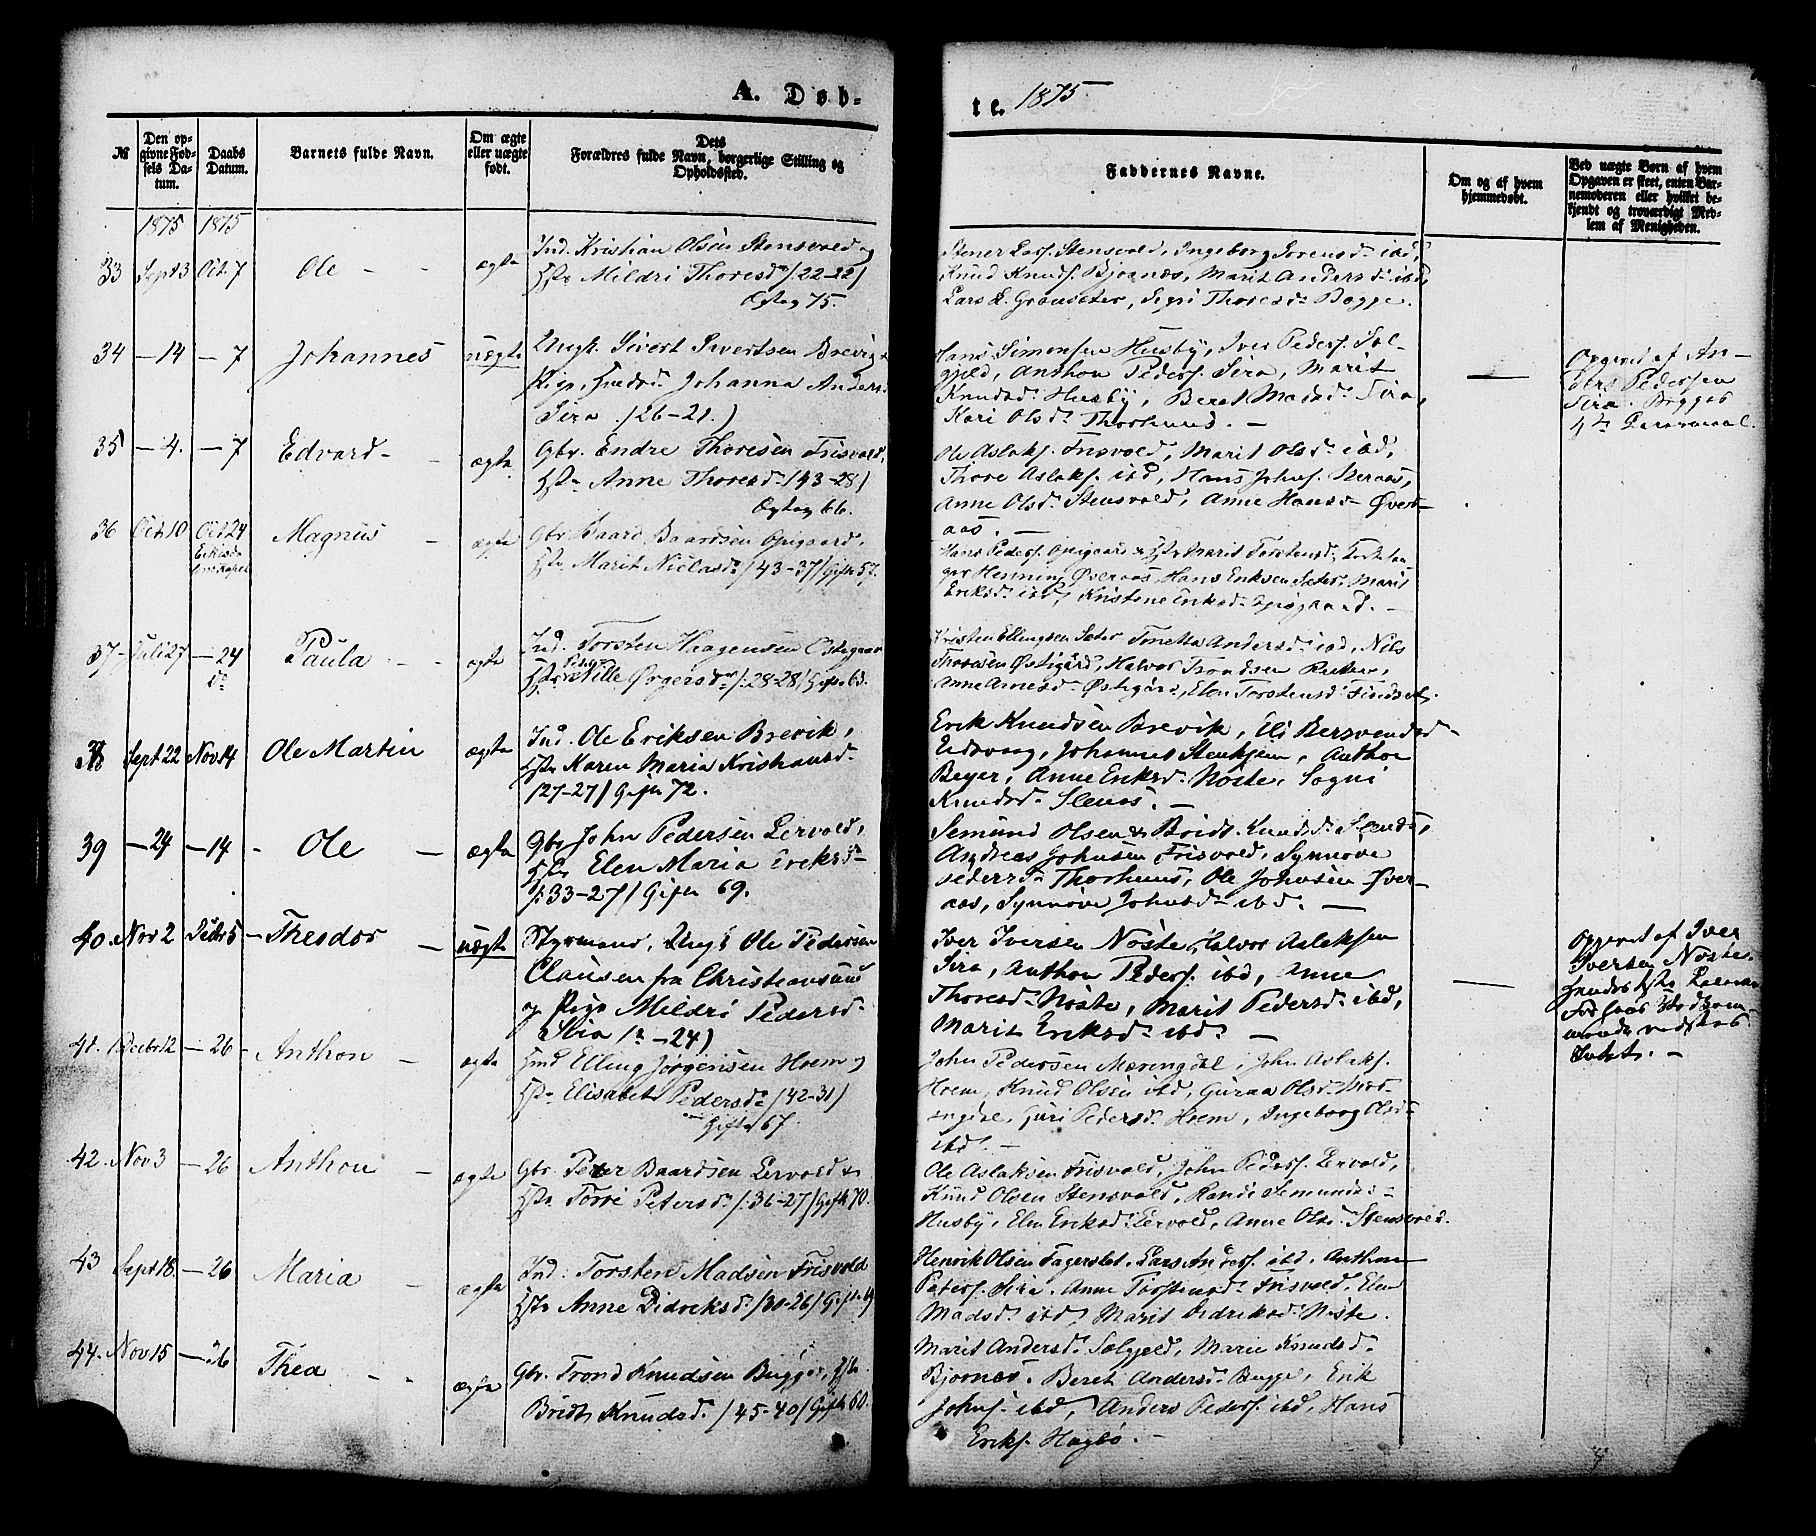 A. Døb-
te. 1875
№
Den op-
givne Fød-
sels Da-
tum.
Daabs
Datum.
Barnets fulde Navn.
Om ægte
eller uægte
født.
Dets
Forældres fulde Navn, borgerlige Stilling og
Opholdssted.
Faddernes Navne.
Om og af hvem
hjemmedøbt.
Ved uægte Børn af hvem
Opgaven er skeet, enten Bar-
nemoderen eller hvilket be-
kjendt og troværdigt Med-
lem af Menigheden.
1875 1875
33 Sept 3 Oct. 7 Ole - - ægte
Ind. Kristian Olsen Stensvold og
Hst. Mildri Thoresdr /22-22/
Ægteg 75.
Stener Lars. Stensvold, Ingeborg Sorensd. ibd,
Knud Knuds. Bjørnæs, Marit Andersd. ibd,
Lars L. Granseter, Sigri Thoresd. Bugge.
34 - 14 - 7 Johannes uægte
Ungk. Sivert Sivertsen Brevig
Pige, Johanna Andersd
Sira. /26-21.)
Hans Simonsen Husby, Iver Peders. Sol-
gjeld, Anthon Peders. Sira, Marit
Knudsd. Husby, Beret Madsd. Sira,
Kari Olsd. Thorhund. -
-
Opgivet af An-
ders Pedersen
Sira. Begges
35 - 4. - 7 Edvard - - ægte
Gbr. Endre Thoresen Frisvold,
Hst. Anne Thoresd. /43-28/
Ægteg 66.
Ole Aslaks. Frisvold, Marit Olsd. ibd,
Thore Aslaks. ibd, Hans Johns.
Anne Olsd. Stensvold, Anne Hansd. Øver-
aas. -
36 Oct. 10 Oct 24 Magnus - ægte
Gbr. Baard Baardsen Opigaard,
Hst. Marit Nielsdr /43-37/ Gifte 57.
Hans Peders. Opigaard & Hst. Marit Torstensd.,
Henning Øveraas, Hans Eriksen Sæter, Marit
Eriksd. ibd, Kristene Eriksd. Opigaard. -
37 - Juli 27 - 24 Paula - - ægte
do
Ind. Torsten Haagensen Østigaard
Hst. Pille Ørgersdr /:28-28/ Gifte 63.
Kristen Ellingsen Sæter, Tonetta Andersd. ibd, Nils
Thoresen Østigård, Halvor Trondsen
Anne Arnesd. Østigård, Elen Torstensd. Findset.
38 Sept 22 Nov 14 Ole Martin ægte
Ind. Ole Eriksen Brevik,
Hst. Karen Maria Kristiansd.
/27-27/ Gifte 72.
Erik Knudsen Brevik, Eli Bersvendsd
Eidsvaag, Johannes, Anthon
Beyer, Anne Eriksd. Nøste, Sogni
Knudsd. -
39 - 24 - 14 - Ole - ægte
Gbr John Pedersen Lervold,
Hst. Elen Maria Eriksd-
/:33-27/ Gifte 69.
Semund Olsen & Bridt Knudsd.,
Andreas Johnsen Frisvold, Synnøve
Pedersd. Thorhuus, Ole Johnsen Øver-
aas, Synnøve Johnsd. ibd. -
40 Nov 2 Decbr 5 - Theodor - uægte
Styrmand, Ungk. Ole Pedersen
Clausen fra Christiansund
og Pige Mildri Pedersd.
Sira /? -24)
Iver Iversen Nøste, Halvor Aslaksen
Sira, Anthon Peders. ibd, Anne
Thoresd. Nøste, Marit Pedersd. ibd,
Marit Eriksd. ibd. -
-
Opgivet af Iver
Iversen Nøste.
41. Decbr 12 - 26 - Anthon - ægte
Hmd Elling Jørgensen Hoem og
Hst. Elisabet Pedersdr /42-31)
Gifte 67.
John Pedersen Meringdal, John Aslaks.
Hoem, Knud Olsen ibd, Guraa Olsd.
Guri Pedersd. Hoem, Ingeborg Olsd.
ibd. -
42. Nov 3 - 26 Anthon - ægte
Gbr. Peter Baardsen Lervold &
Hst. Torre Petersdr /:36-27/ Gifte 70.
Ole Aslaksen Frisvold, John Peders. Lervold,
Knud Olsen Stensvold, Randi Semundsd-
Husby, Elen Eriksd. Lervold, Anne Olsd. Stensvold.
43 Sept 18. - 26 Maria - ægte
Ind. Torsten Madsen Frisvold
Hst. Anne Didreksd. /30-26/ Gifte 69
Henrik Olsen Fagerslet, Lars Anders. ibd, Anthon
Peters. Sira, Anne Torstensd. Frisvold, Elen
Madsd. ibd, Marit Didriksd. Nøste.
44. Nov 15 - 26 Thea - - ægte
Gbr. Trond Knudsen Bugge, Hst.
Bridt Knudsd. /45-40/ Gifte 60.
Marit Andersd. Solgjeld, Marie Knudsd.
Bjørnæs, Beret Andersd. Bugge, Erik
Johns. ibd, Anders Peders. ibd, Hans
Eriks. Hagbø. -